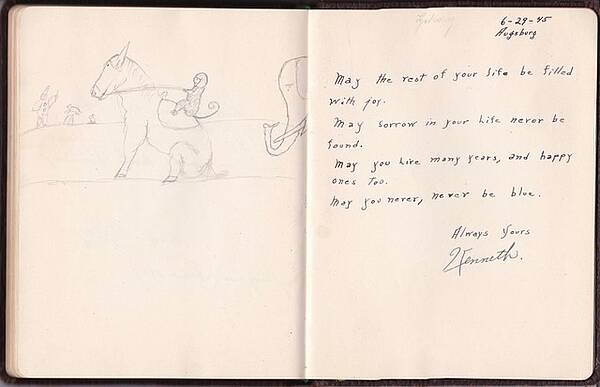 6-29-45
Augsburg
May the rest of your life be filled
with joy.
May sorrow in your life never be
found.
May you live many years, and happy
ones too.
May you never, never be blue.
Always Yours
Kenneth.